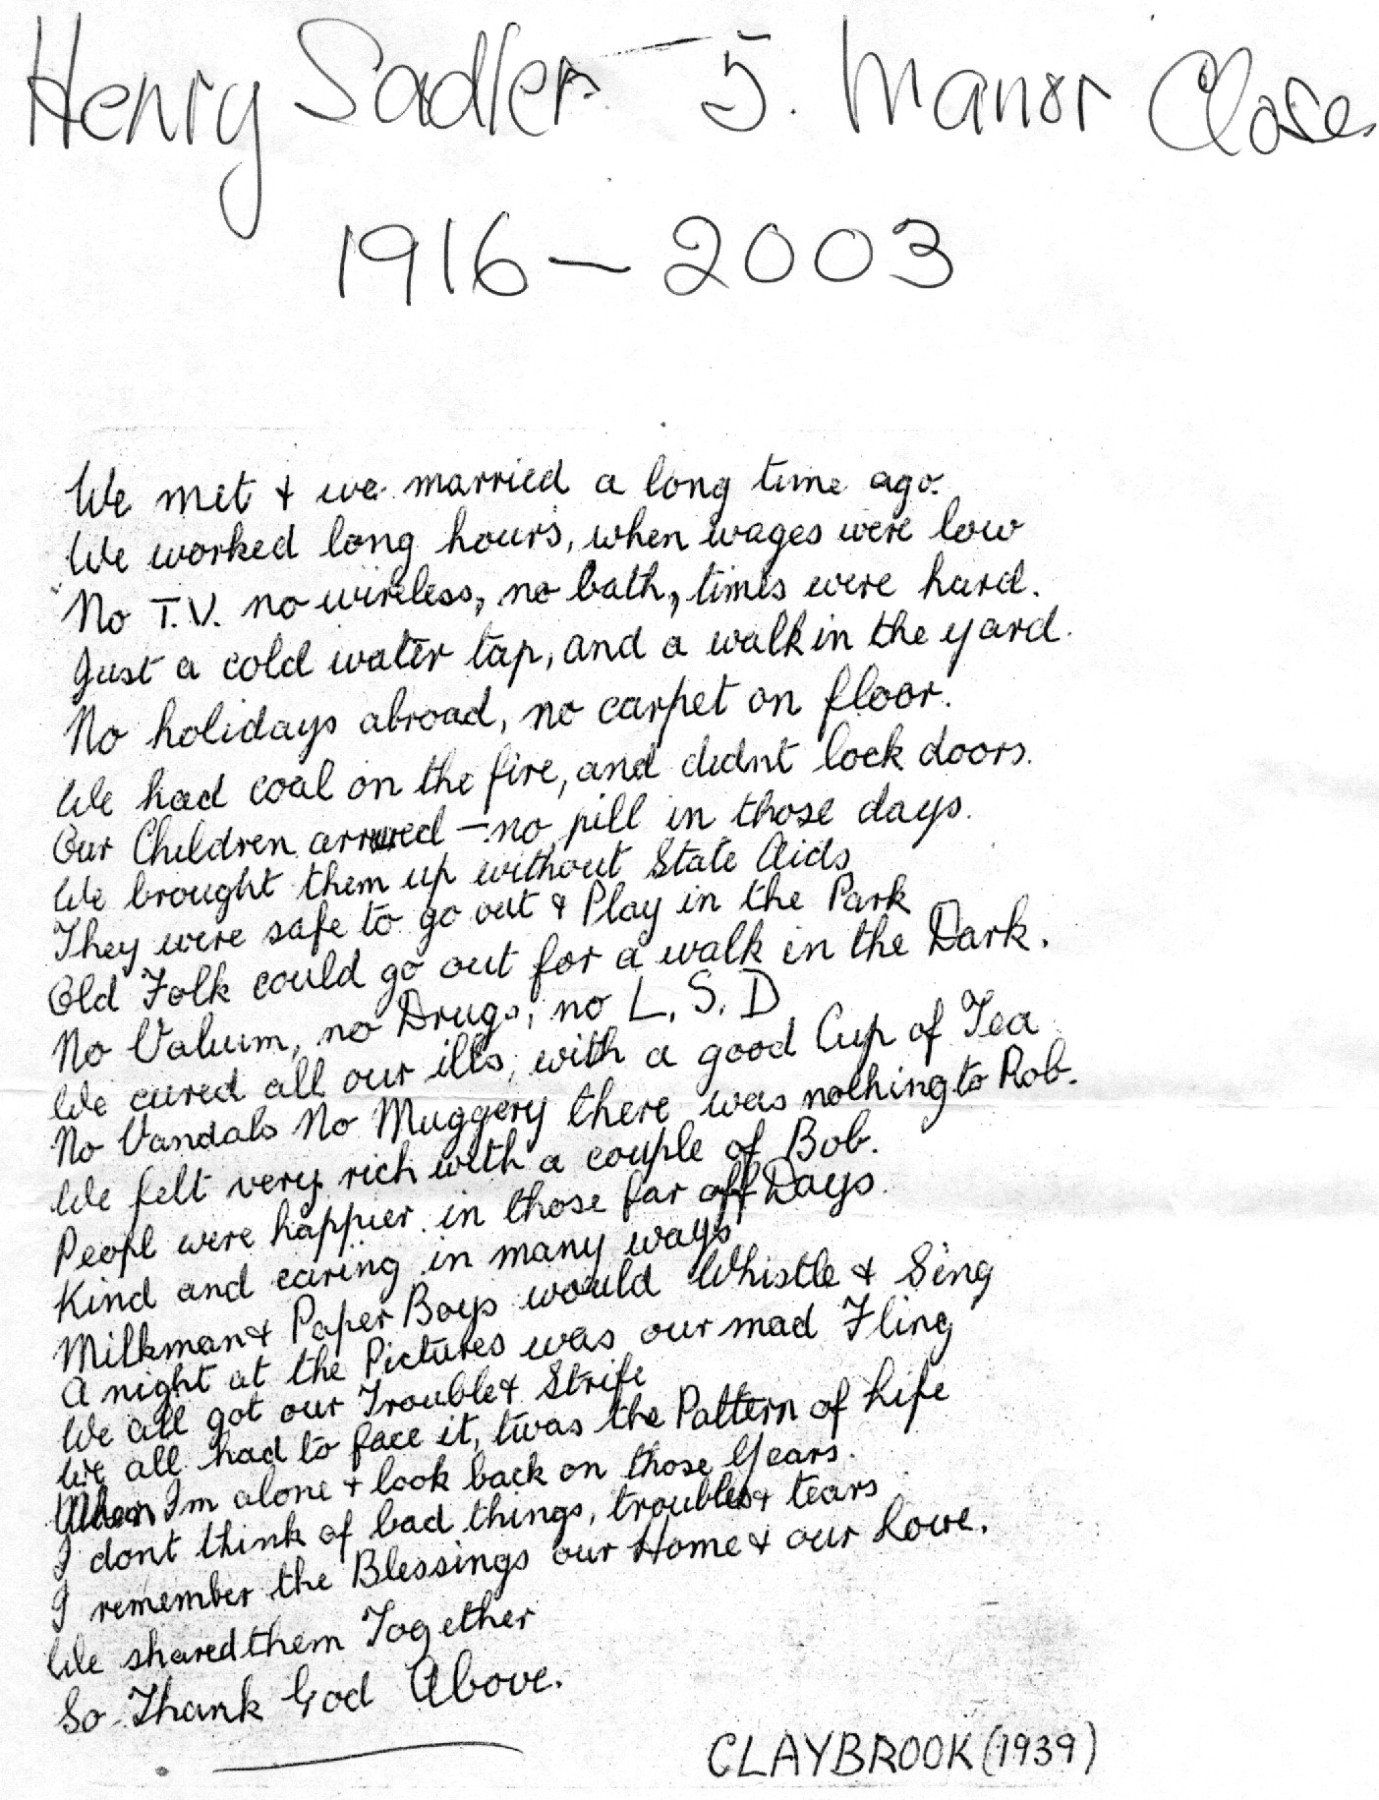 Henry Sadler - 5. Manor Close
1916 - 2003
We met & we married a long time ago.
We worked long hours, when wages were low
No T.V. no wireless, no bath, times were hard.
Just a cold water tap, and a walk in the yard.
No holidays abroad, no carpet on floor.
We had coal on the fire, and didnt lock doors.
Our Children arrived - no pill in those days.
We brought them up without State Aids
They were safe to go out & Play in the Park
Old Folk could go out for a walk in the Dark.
No Valium, no Drugs, no L.S.D
We cured all our ills, with a good Cup of Tea
No Vandals No Muggery there was nothing to Rob.
We felt very rich with a couple of Bob.
Peopl were happier in those far off Days
Kind and caring in many ways
Milkman & Paper Boys would Whistle & Sing
A night at the Pictures was our mad Fling
We all got our Trouble & Strife
We all had to face it, twas the Pattern of Life
When Im alone & look back on those Years.
I dont think of bad things, troubles & tears
I remember the Blessings our Home & our Love.
We shared them Together
So Thank God Above.
CLAYBROOK (1939)